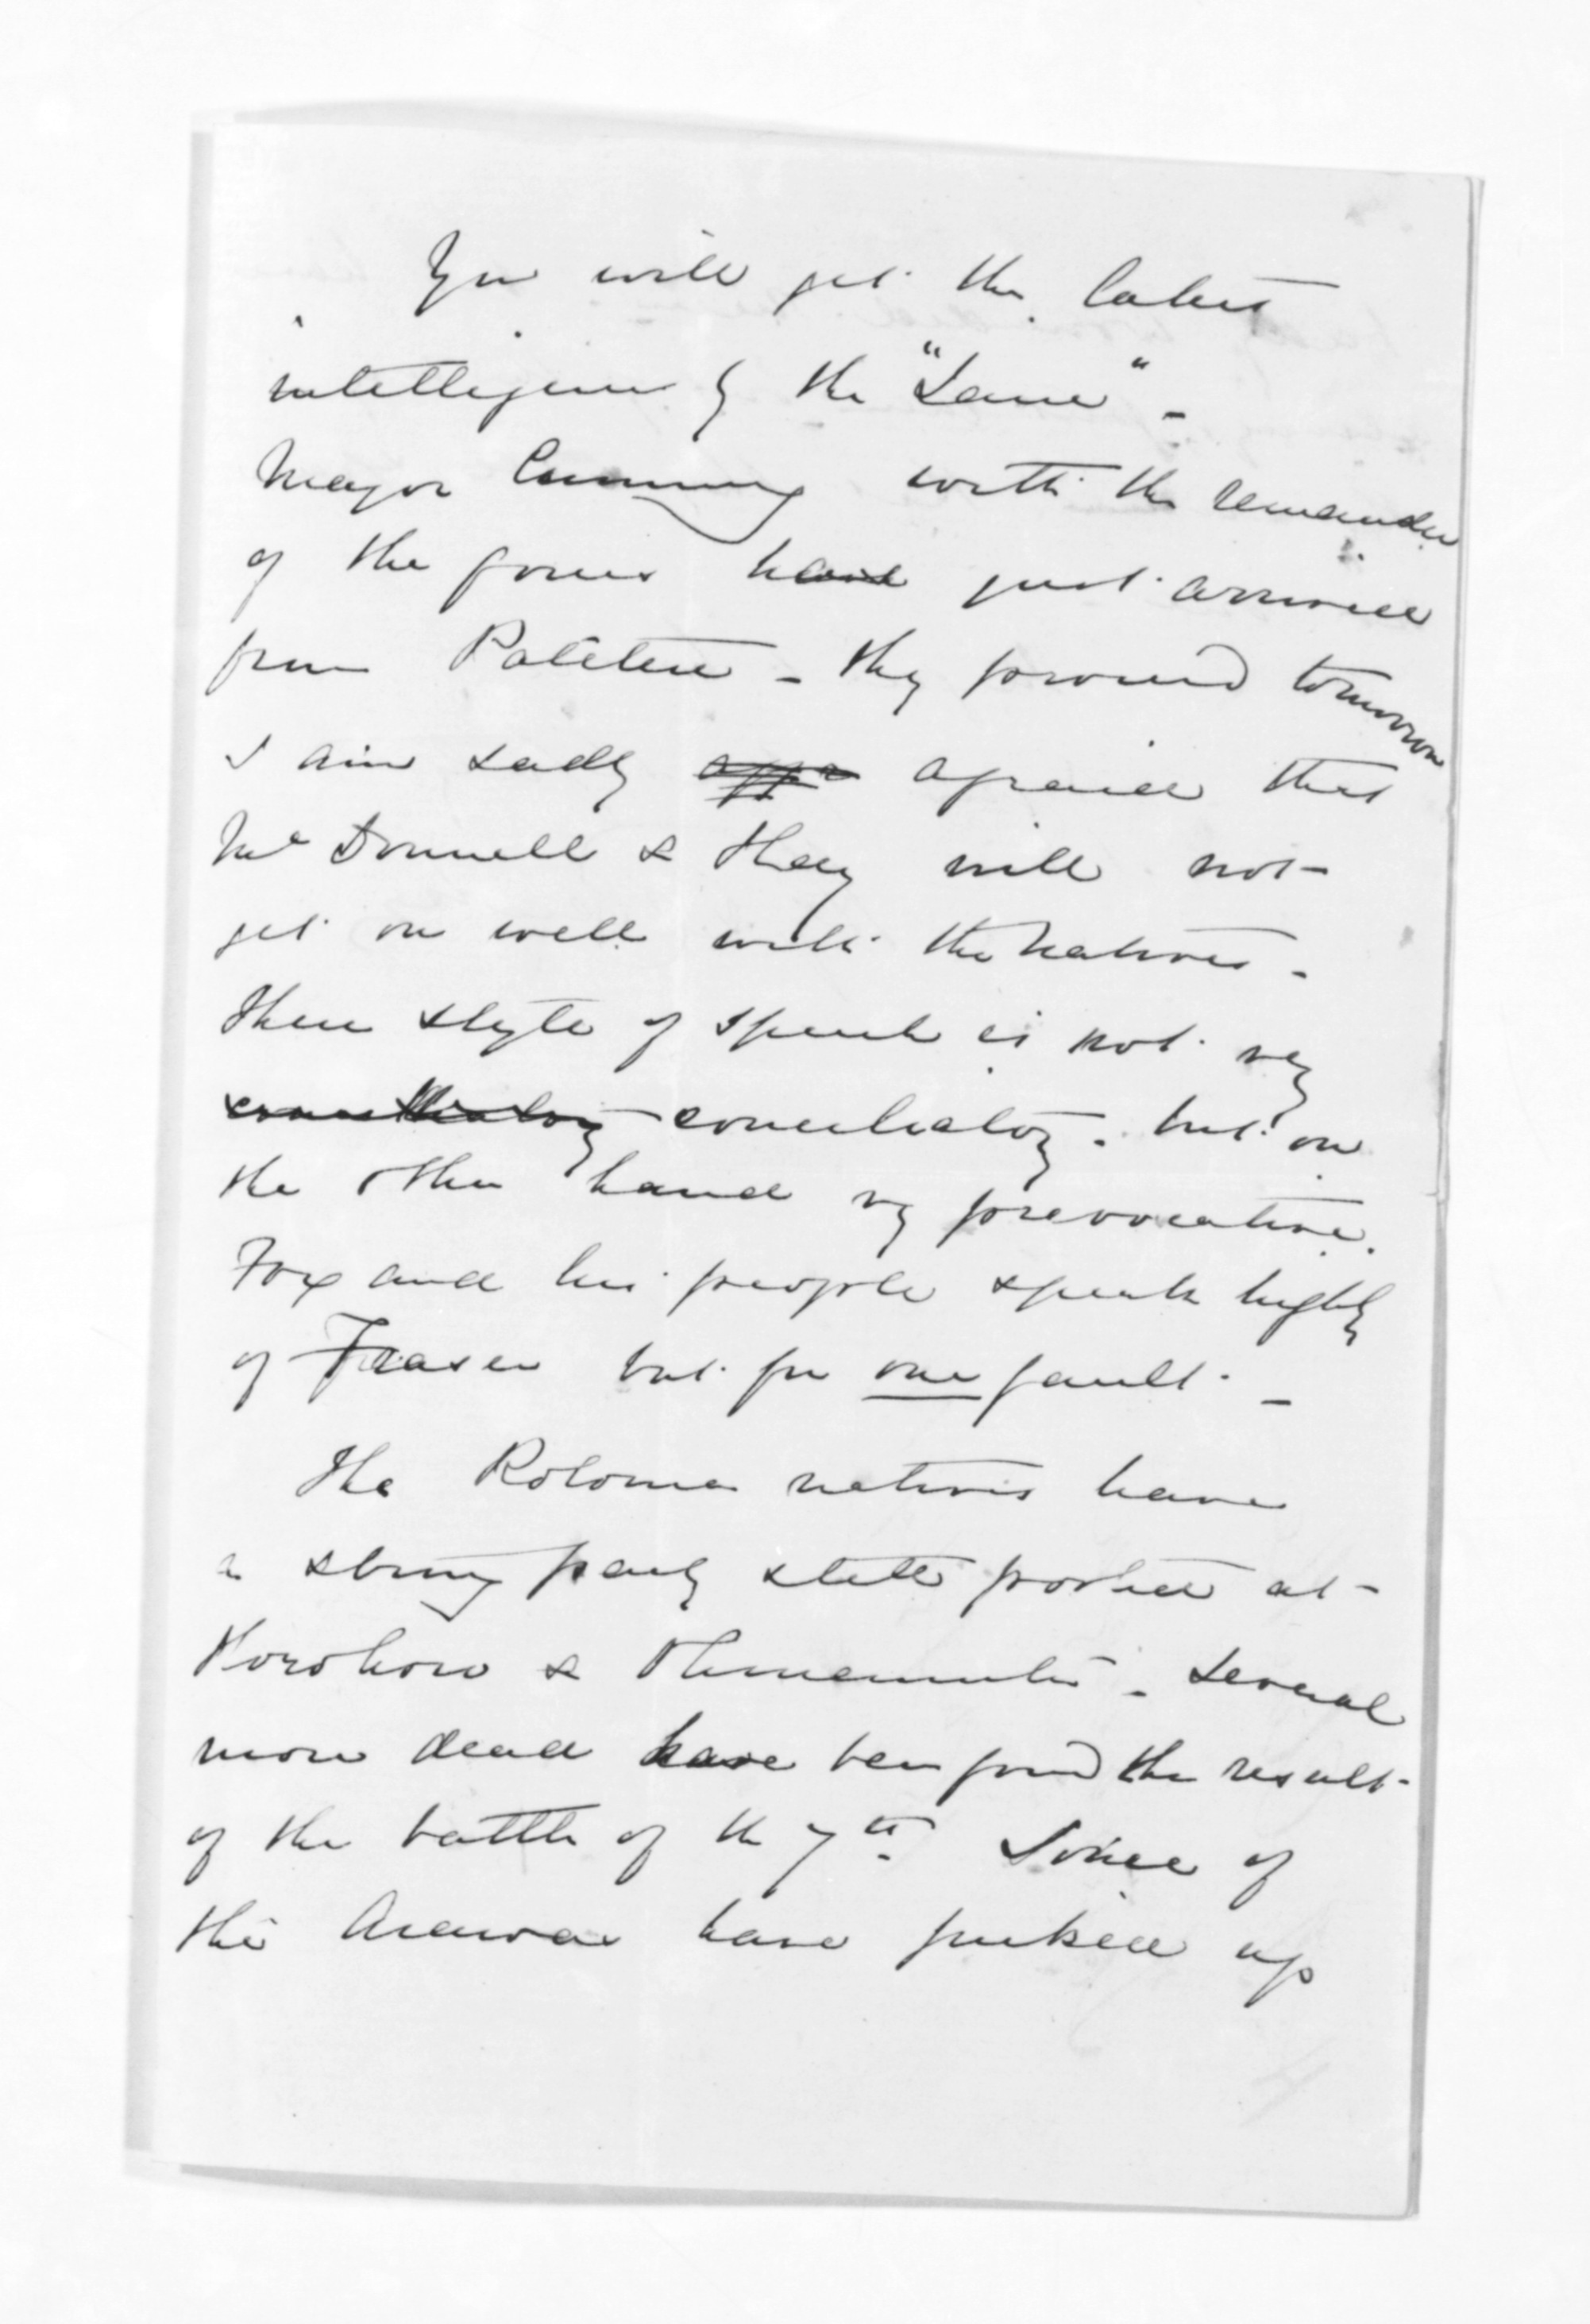 You will get the latest
intelligence by the "Lane" -
Major Cumming with the remainder
of the force have just arrived
from Patetere - they proceed tomorrow
I am sadly afraid that
McDonnell & they will not
get on well with the Natives -
Their style of speech is not very
conciliatory conciliatory - but on
the other hand very provocative.
Fox and his people speak highly
of Fraser but for one fault -
The Rotorua natives have
a strong party still posted at
Horohoro & Ohinemutu - Several
more dead have been found the result
of the battle of the 7th Some of
the Arawa have picked up